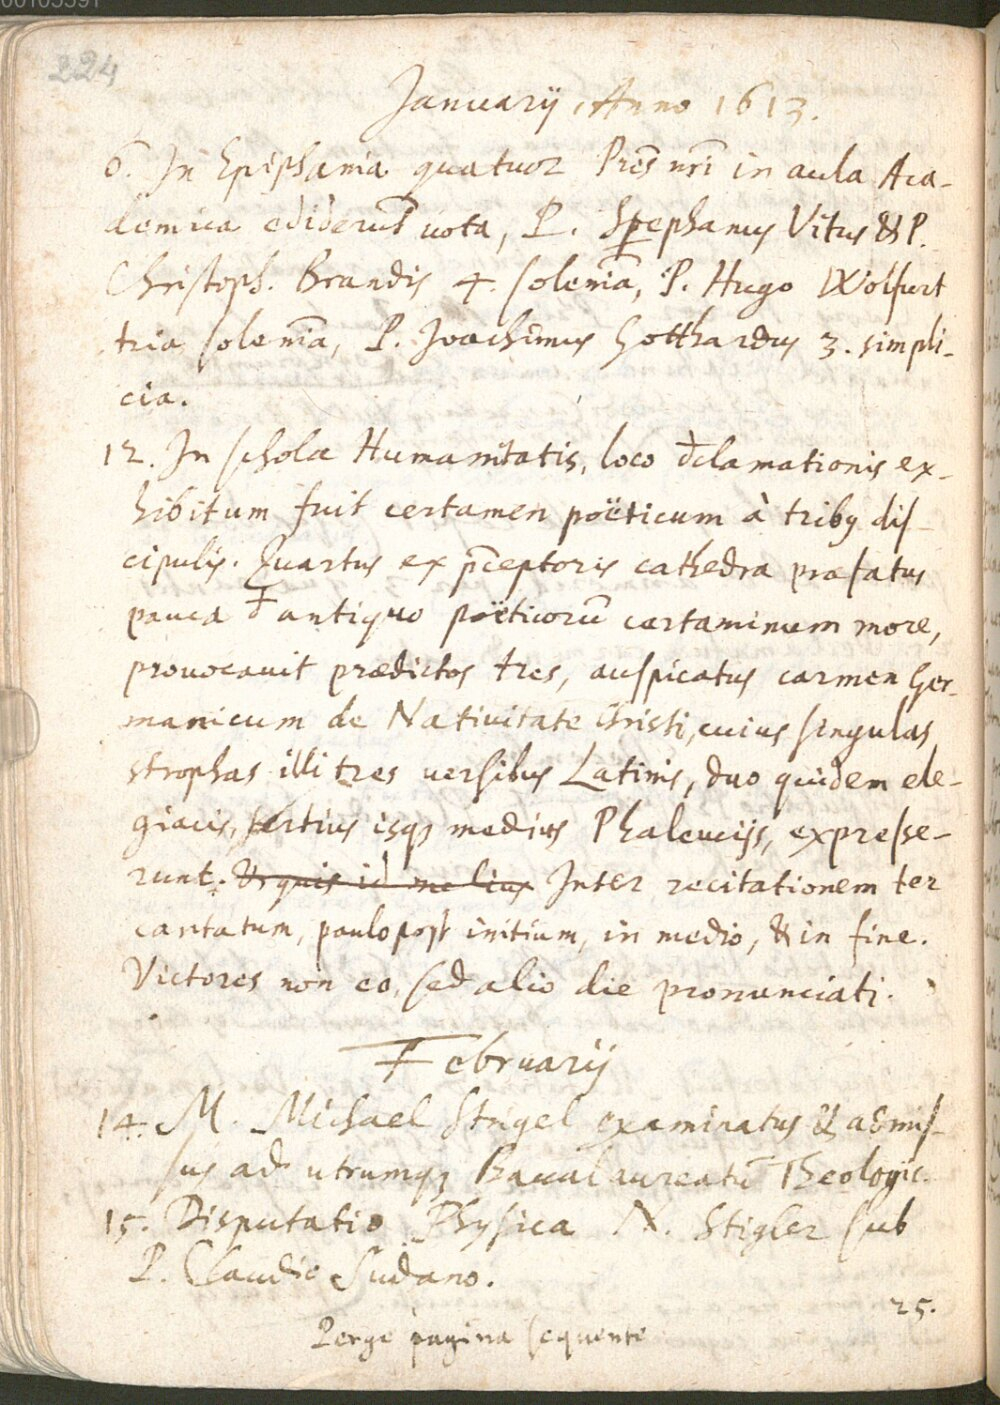 00105591
224
Januarij Anno 1613.
6. In Epiphania quatuor Pr̃es nr̃i in aula Aca-
demica ediderũt uota, P. Stephanus Vitus & P.
Christoph. Brandis 4. solem̃ia, P. Hugo Wolfurt
tria solem̃ia, P. Joachimus Gotthardus 3. simpli-
cia.
12. In schola Humanitatis, loco d̄clamationis ex-
hibitum fuit certamen poëticum à tribus dis-
cipulis. Quartus ex p̄ceptoris cathedra præfatus
pauca d̄ antiquo poëticorũ certaminum more,
prouocauit prædictos tres, auspicatus carmen Ger-
manicum de Natiuitate Christi, cuius singulas
strophas illi tres uersibus Latinis, duo quidem ele-
giacis, tertius isq; medius Phaleucijs, expresse-
runt. Vrquis id melius Inter recitationem ter
cantatum, paulo post initium, in medio, & in fine.
Victores non eo, sed alio die pronunciati.
Februarij
14. M. Michael Stigel examinatus & admis-
sus ad utrumq; Baccalaureatũ Theologic.
15. Disputatio Physica N. Stigler sub
P. Claudio Sudano.
25.
Perge pagina sequente